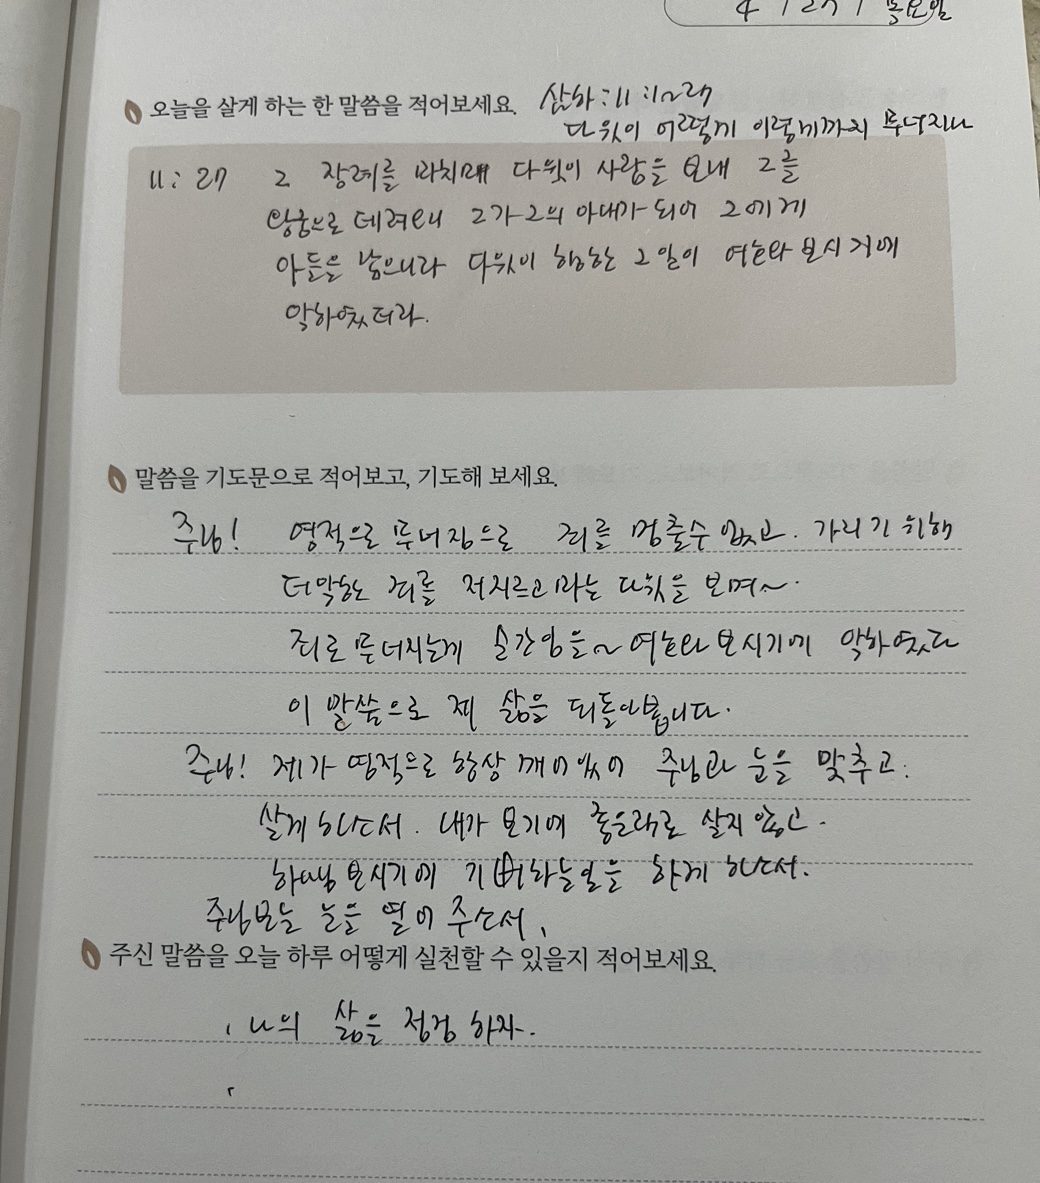 목요일
오늘을 살게 하는 한 말씀을 적어보세요. 삼하:11:1~27
다윗이 어떻게 이렇게까지 무너지나
11:27 그 장례를 마치매 다윗이 사람을 보내 그를
왕궁으로 데려오니 그가 그의 아내가 되어 그에게
아들을 낳으니라 다윗이 행한 그 일이 여호와 보시기에
악하였더라.
말씀을 기도문으로 적어보고, 기도해 보세요.
주님! 영적으로 무너짐으로 죄를 멈출수 없고. 가리기 위해
더악한 죄를 저지르고마는 다윗을 보며~.
죄로 무너지는게 순간임을~ 여호와 보시기에 악하였다
이 말씀으로 제 삶을 되돌아봅니다.
주님! 제가 영적으로 항상 깨어있어 주님과 눈을 맞추고.
살게 하소서. 내가 보기에 좋은대로 살지 않고.
하나님 보시기에 기뻐하는일을 하게 하소서.
주님보는 눈을 열어 주소서.
주신 말씀을 오늘 하루 어떻게 실천할 수 있을지 적어보세요.
나의 삶을 점검 하자.